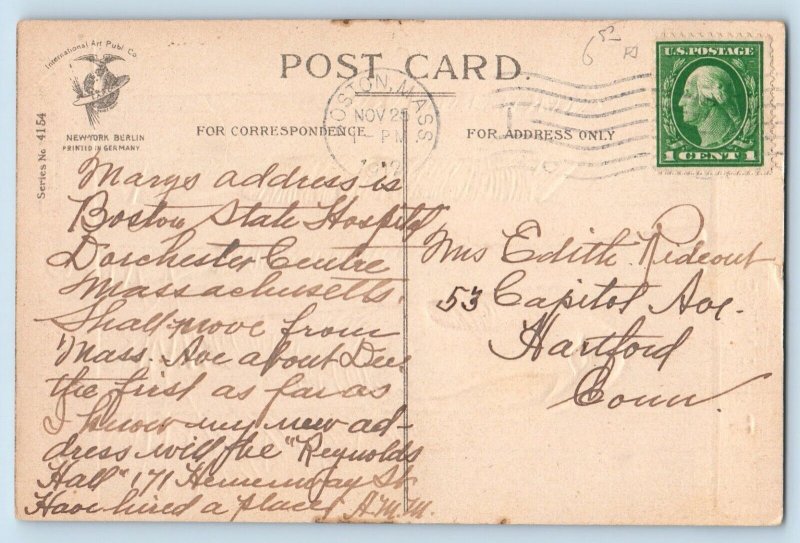 International Art Publ. Co
NEW-YORK BERLIN
PRINTED IN GERMANY
Series No 4154
POST CARD.
BOSTON, MASS.
NOV 25
1-PM
U.S. POSTAGE
1 CENT 1
FOR CORRESPONDENCE
FOR ADDRESS ONLY
Marys address is
Boston State Hospital
Dorchester Centre
Massachusetts.
Shall move from
Mass. Ave about Dec
the first as far as
I know my new ad-
dress will be "Reynolds
Hall" 171 Hemenway St.
Have hired a place, A.M.M.
Mrs Edith Rideout
53 Capitol Ave.
Hartford
Conn.